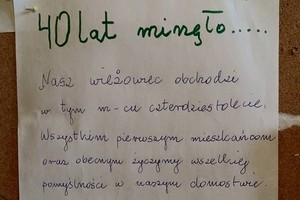 40 lat minęło.....
Nasz wieżowiec obchodzi
w tym m-cu czterdziestolecie.
Wszystkim pierwszym mieszkańcom
oraz obecnym życzymy wszelkiej
pomyślności w naszym domostwie.